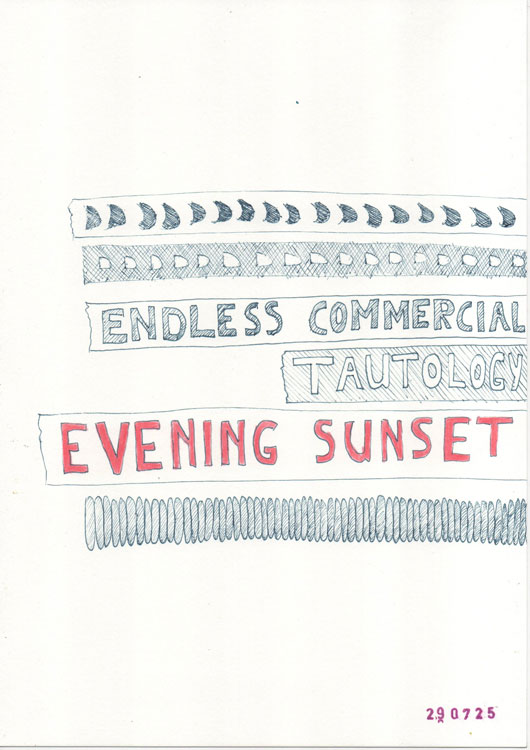 ENDLESS COMMERCIAL
TAUTOLOGY
EVENING SUNSET
290725